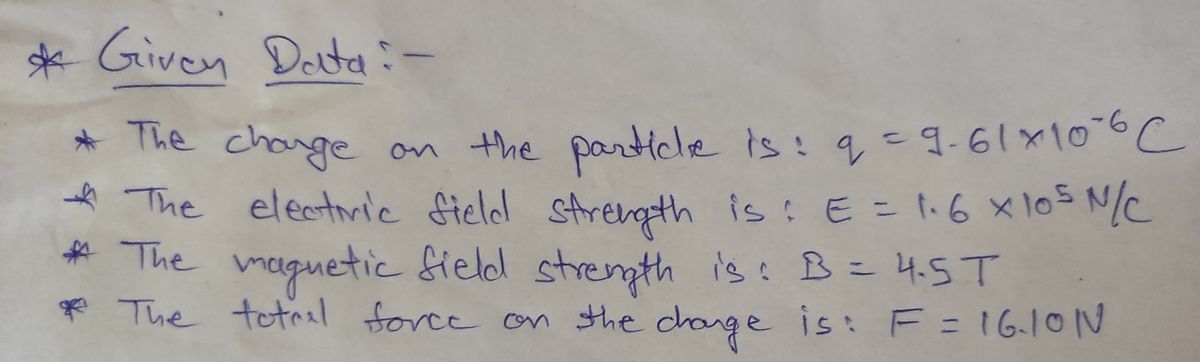 * Given Data:-
* The charge on the particle is: q = 9.61×10⁻⁶ C
* The electric field strength is: E = 1.6 ×10⁵ N/C
* The magnetic field strength is: B = 4.5 T
* The total force on the charge is: F = 16.10 N